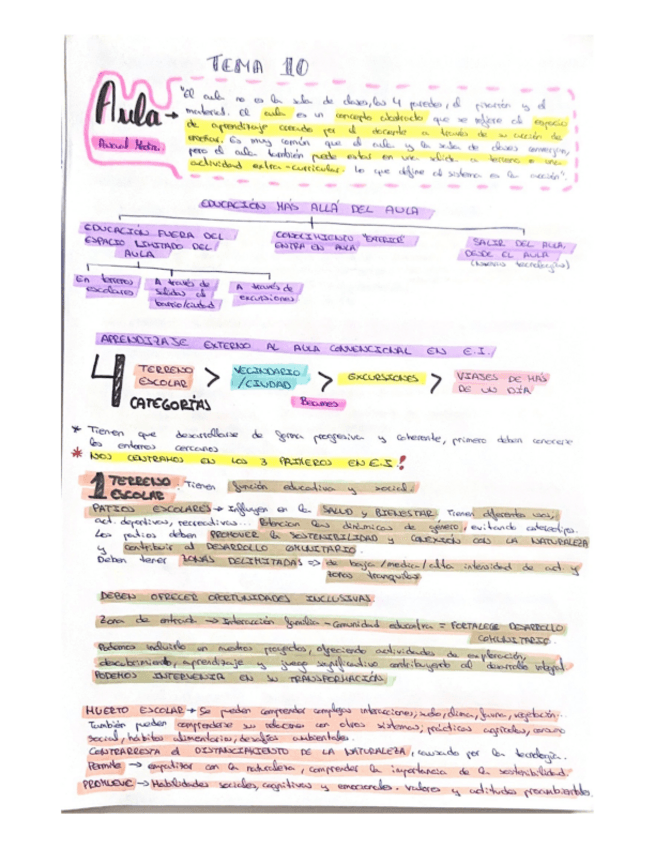 TEMA 10
Aula → "El aula no es la sala de clases, las 4 paredes, el pizarrón y el
material. El aula es un concepto abstracto que se refiere al espacio
de aprendizaje creado por el docente a través de su acción de
enseñar. Es muy común que el aula y la sala de clases converjan,
pero el aula también puede estar en una salida a terreno o una
actividad extra-curricular. Lo que define al sistema es la acción".
EDUCACIÓN MÁS ALLÁ DEL AULA
EDUCACIÓN FUERA DEL
ESPACIO LIMITADO DEL
AULA
CONOCIMIENTO "EXTERIOR"
ENTRA EN AULA
SALIR DEL AULA,
DESDE EL AULA
(Nuevas tecnologías)
En terrenos
escolares
A través de
salidas al
barrio/ciudad
A través de
excursiones
APRENDIZAJE EXTERNO AL AULA CONVENCIONAL EN E.I.
4 CATEGORÍAS
TERRENO
ESCOLAR >
VECINDARIO
/CIUDAD >
EXCURSIONES >
VIAJES DE MÁS
DE UN DÍA
* Tienen que desarrollarse de forma progresiva y coherente, primero deben conocerse
los entornos cercanos
* NOS CENTRAMOS EN LOS 3 PRIMEROS EN E.I.!
1 TERRENO
ESCOLAR : Tienen función educativa y social.
PATIOS ESCOLARES → Influyen en la SALUD y BIENESTAR. Tienen diferentes usos,
act. deportivas, recreativas... Potencian las dinámicas de género, evitando estereotipos.
Los patios deben PROMOVER la SOSTENIBILIDAD y CONEXIÓN CON LA NATURALEZA
y contribuir al DESARROLLO COMUNITARIO.
Deben tener ZONAS DELIMITADAS => de baja/media/alta intensidad de act y
zonas tranquilas
DEBEN OFRECER OPORTUNIDADES INCLUSIVAS
Zona de entrada → Interacción familia-comunidad educativa = FORTALECE DESARROLLO
COMUNITARIO.
Podemos incluirlo en nuestros proyectos, ofreciendo actividades de exploración,
descubrimiento, aprendizaje y juego significativo contribuyendo al desarrollo integral.
PODEMOS INTERVENIR EN SU TRANSFORMACIÓN
HUERTO ESCOLAR → Se pueden comprender complejas interacciones, suelo, clima, fauna, vegetación...
También pueden comprenderse su relaciones con otros sistemas, prácticas agrícolas, consumo
social, hábitos alimentarios, desafíos ambientales.
CONTRARRESTA el DISTANCIAMIENTO DE LA NATURALEZA, causado por la tecnología.
Permite → empatizar con la naturaleza, comprender la importancia de la sostenibilidad.
PROMUEVE → Habilidades sociales, cognitivas y emocionales. Valores y actitudes proambientales.